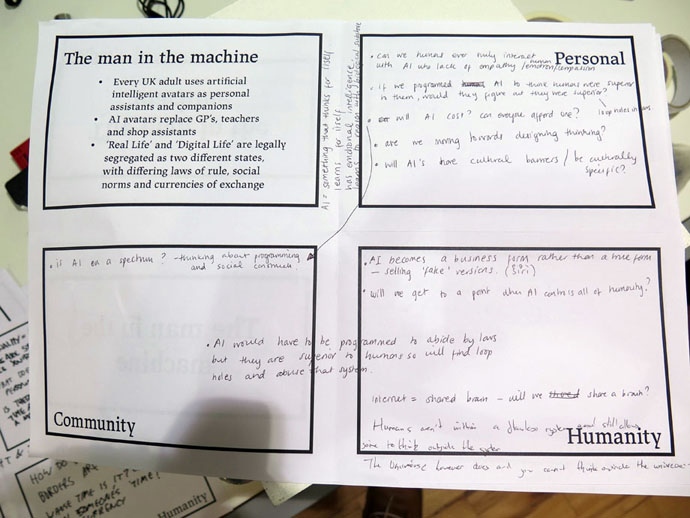 The man in the machine
• Every UK adult uses artificial
intelligent avatars as personal
assistants and companions
• AI avatars replace GP's, teachers
and shop assistants
• 'Real Life' and 'Digital Life' are legally
segregated as two different states,
with differing laws of rule, social
norms and currencies of exchange
AI = something that thinks for itself
learns for itself
has emotional intelligence
learns to reason with biological
Personal
• can we humans ever truly interact
with AI who lack of empathy / human emotion/compassion
• if we programed AI to think humans were superior
to them, would they figure out they were superior?
loop holes in laws.
• will AI cost? can everyone afford one?
• are we moving towards designing thinking?
• will AI's have cultural barriers / be culturally
specific?
• is AI on a spectrum? - thinking about programming
and social construct.
• AI would have to be programmed to abide by laws
but they are superior to humans so will find loop
holes and abuse that system.
Community
• AI becomes a business form rather than a true form
- selling 'fake' versions. (Siri)
• will we get to a point when AI controls all of humanity?
internet = shared brain - will we share a brain?
Humans aren't within a flawless system and still allow
some to think outside the system
- The universe however does and you cannot think outside the universe -
Humanity
HOW DO
BORDERS
WHAT TIME IS IT?
SOMEONES TIME?
CURRENCY
Humanity